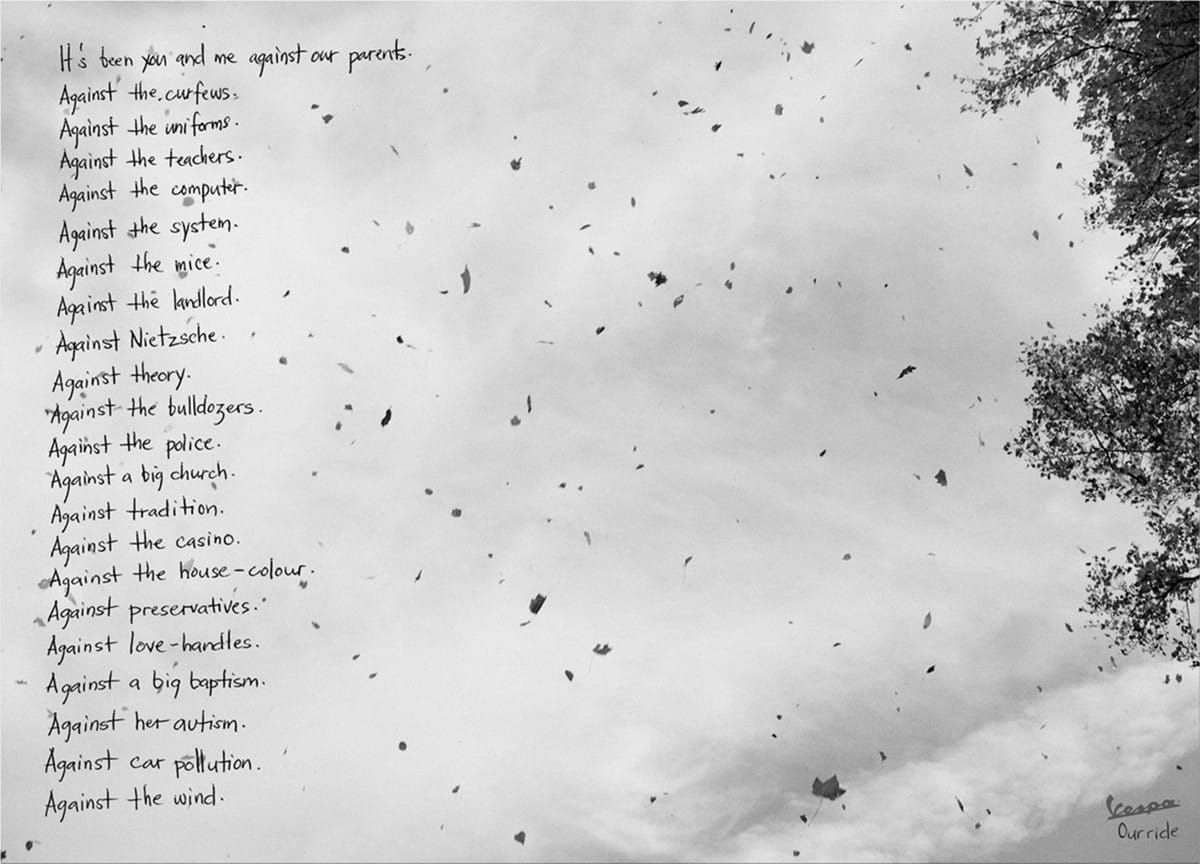 It's been you and me against our parents.
Against the curfews.
Against the uniforms.
Against the teachers.
Against the computer.
Against the system.
Against the mice.
Against the landlord.
Against Nietzsche.
Against theory.
Against the bulldozers.
Against the police.
Against a big church.
Against tradition.
Against the casino.
Against the house-colour.
Against preservatives.
Against love-handles.
Against a big baptism.
Against her autism.
Against car pollution.
Against the wind.
Vespa
Our ride